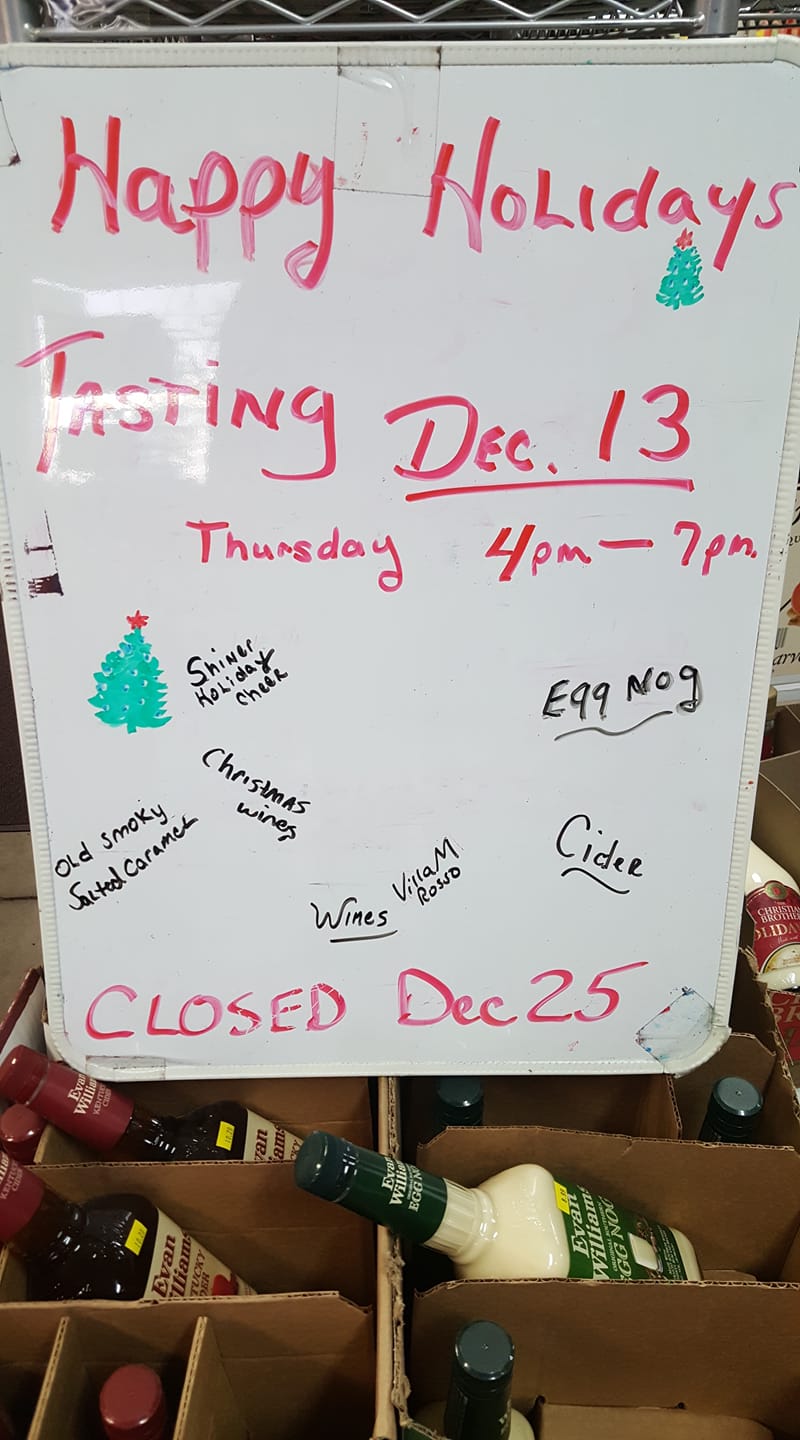 Happy Holidays
Tasting Dec. 13
Thursday 4pm — 7pm.
Shiner
Holiday
Cheer
Egg Nog
Christmas
wines
Old Smoky
Salted Caramel
Cider
Wines
Villa M
Rosso
CLOSED Dec 25
CHRISTIAN
BROTHE
OLIDA
Evan
Williams
KENTUCKY
CIDER
Evan
Williams
EGG NOG
Evan
Williams
EGG NOG
Evan
Williams